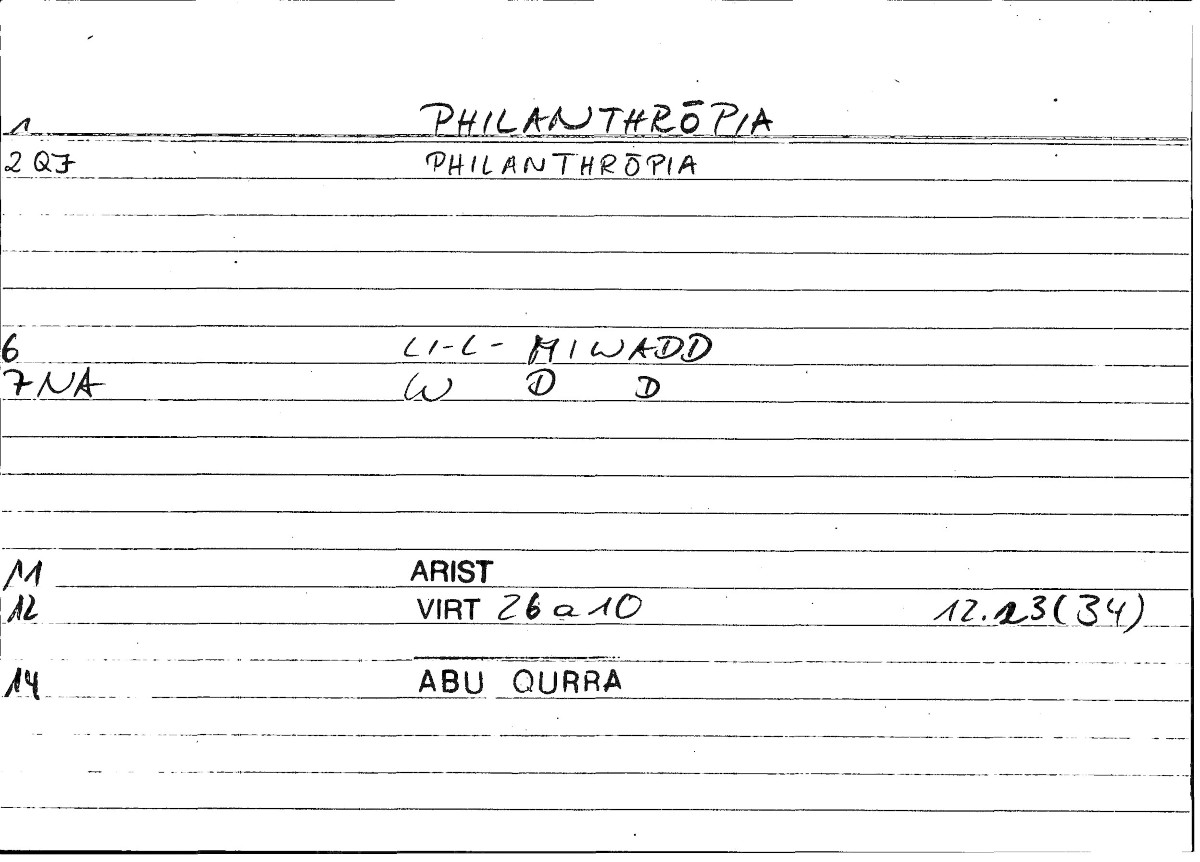 1 PHILANTHRŌPIA
2 QF PHILANTHRŌPIA
6 LI-L- MIWADD
7 NA W D D
11 ARIST
12 VIRT 26a10 12.23(34)
14 ABU QURRA